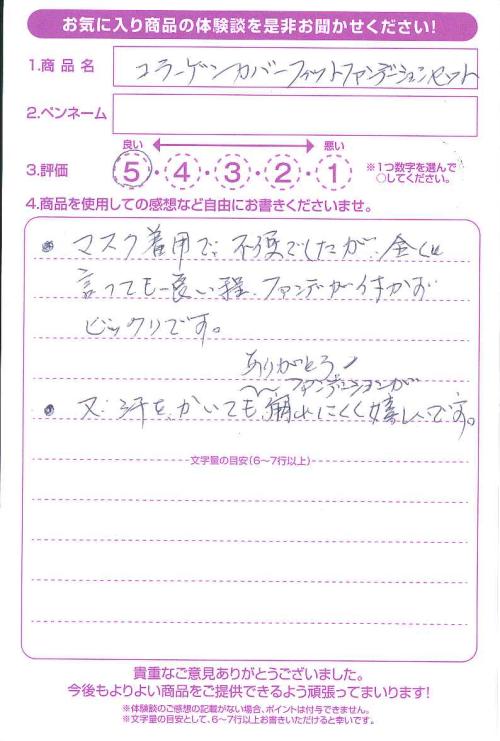 お気に入り商品の体験談を是非お聞かせください!
1.商品名 コラーゲンカバーフィットファンデーションセット
2.ペンネーム
良い 悪い
3.評価 5・4・3・2・1 ※1つ数字を選んで○してください。
4.商品を使用しての感想など自由にお書きくださいませ。
● マスク着用で、不便でしたが、全くと
言っても良い程、ファンデが付かず
ビックリです。
ありがとう!
ファンデーションが
● 又、汗を、かいても崩れにくく嬉しいです。
文字量の目安(6〜7行以上)
貴重なご意見ありがとうございました。
今後もよりよい商品をご提供できるよう頑張ってまいります!
※体験談のご感想の記載がない場合、ポイントは付与できません。
※文字量の目安として、6〜7行以上お書きいただけると幸いです。